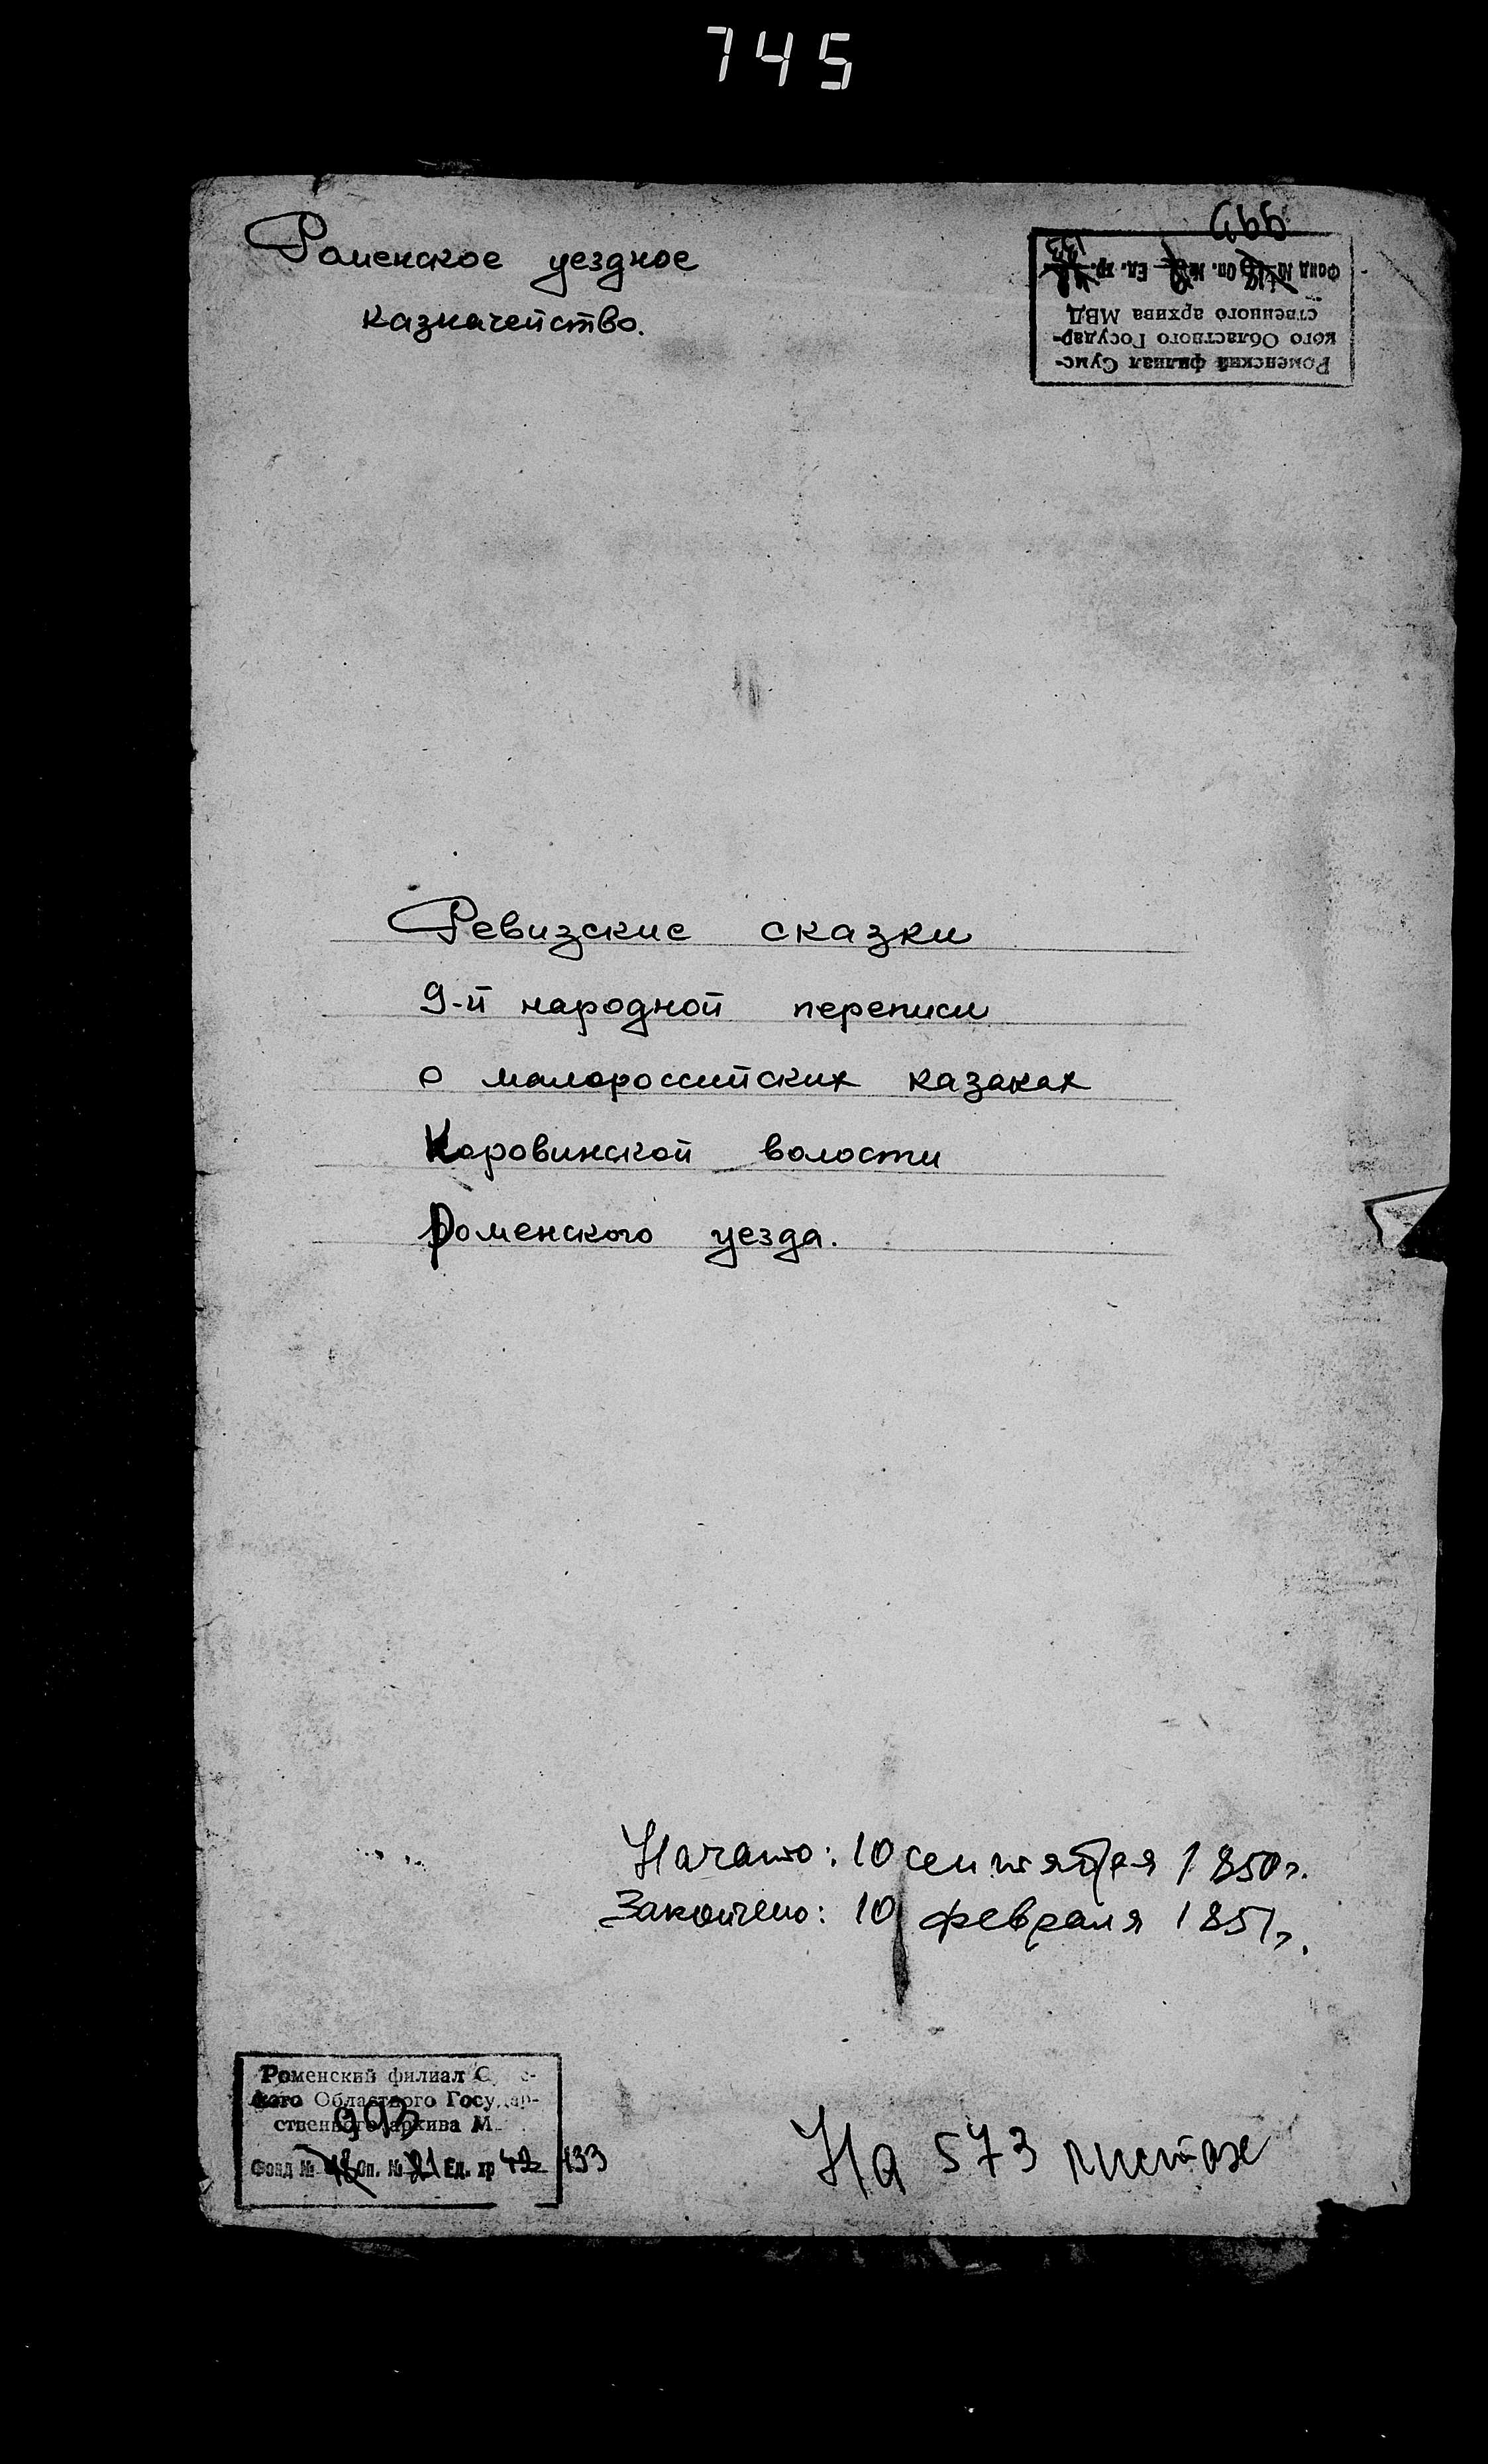 745
Роменское уездное
казначейство.
993
133
Фонд № Оп. № Ед. хр.
ственного архива МВД
кого Областного Государ-
Роменский филиал Сумс-
Ревизские сказки
9-й народной переписи
о малороссийских казаках
Коровинской волости
Роменского уезда.
Начато: 10 сентября 1850 г.
Закончено: 10 февраля 1851 г.
Роменский филиал С с-
кого Областного Государ-
ственного архива М
993
Фонд № Оп. № 21 Ед. хр 42 133
На 573 листах